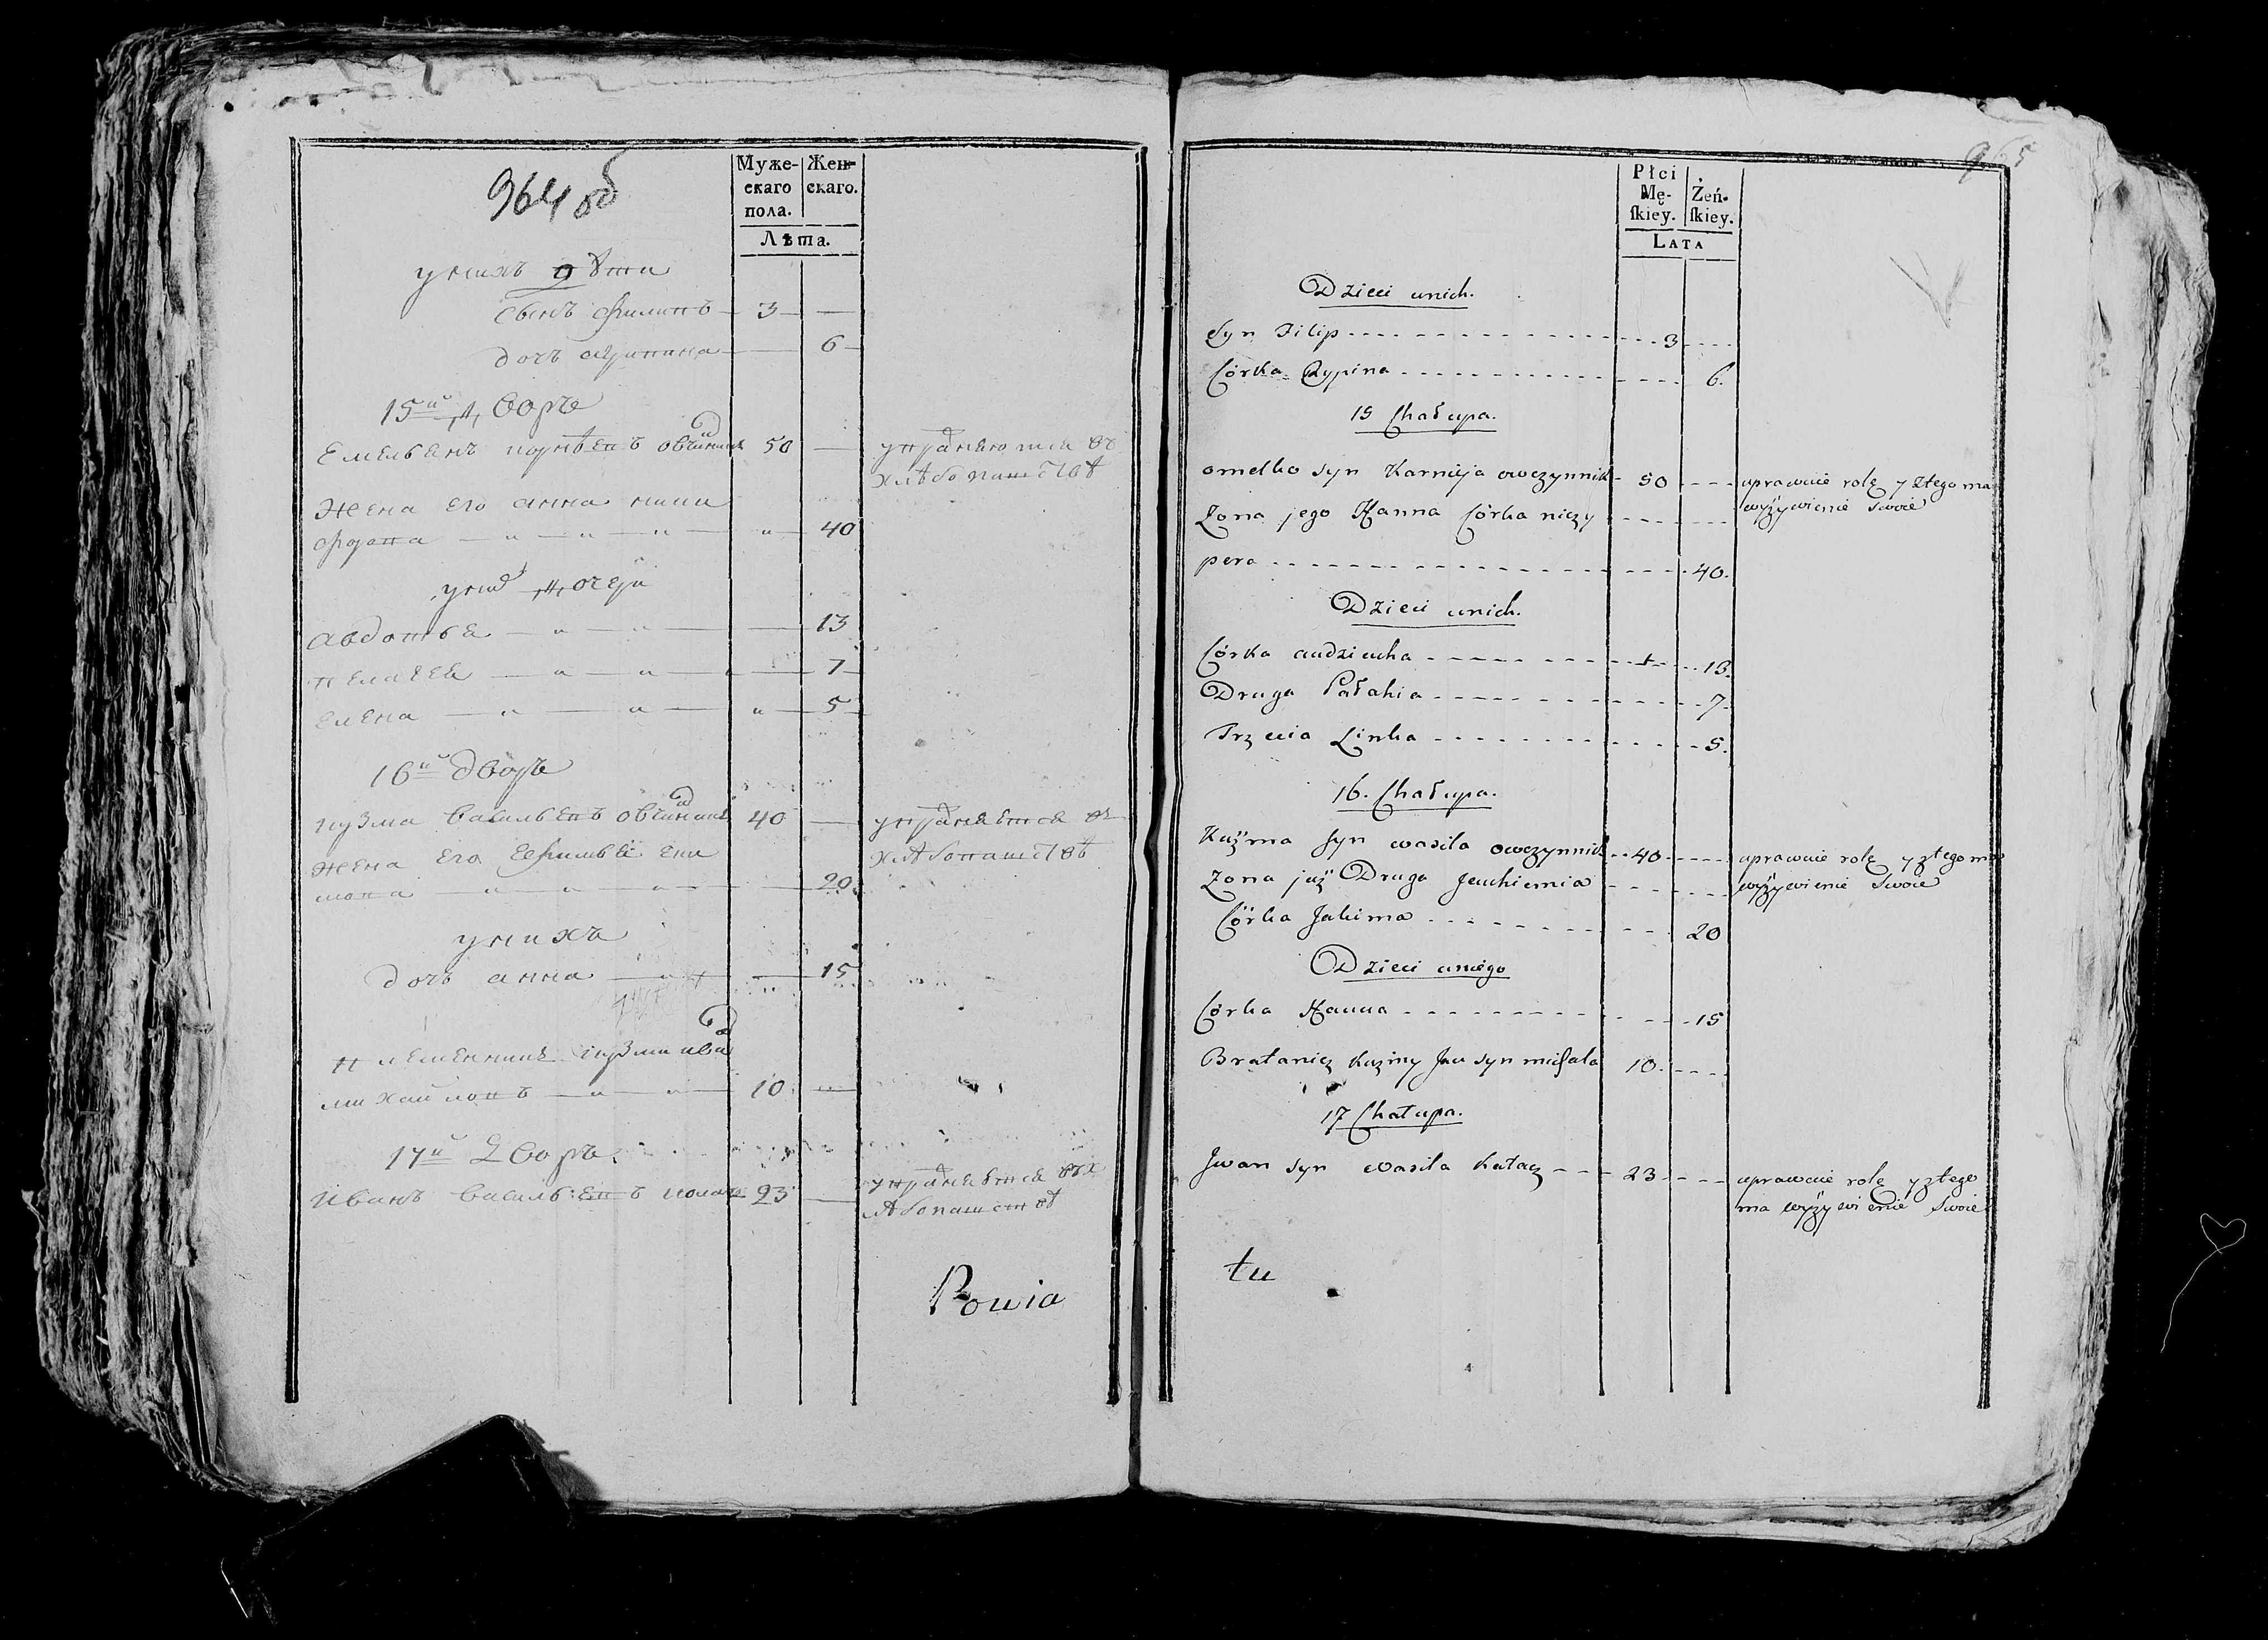 964 об
Муже-
скаго
пола.
Жен-
скаго.
Лѣта.
у нихъ дѣти
сынъ Филипъ 3 —
дочь 6
15й дворъ
Емельянъ овчиник 50 — упражняются въ
хлѣбопашествѣ
жена его анна ники
фрова 40
у них дочери
авдотья 13
пелагея 7
елена 5
16й дворъ
кузма васильевъ овчиник 40 — упражняется въ
хлѣбопашествѣ
жена его ефимья еки
мова 20
у нихъ
дочь анна 15
племенникъ кузми иван
михайловъ 10
17й дворъ
иванъ васильевъ колач 23 — упражняется въ х
лѣбопашествѣ
Powia
965
Płci
Mę-
ſkiey.
Żeń-
ſkiey.
LATA
Dzieci unich.
Syn Filip 3
Córka Rypina 6.
15 Chałupa.
omelko syn Karnieja owczynnik 50 uprawuie rolę y ztego ma
wyżywienie Swoie
Zona jego Hanna Córka niczy
pera 40.
Dzieci unich.
Córka audziucha 13.
Druga Pałahia 7.
Trzecia Linka 5.
16. Chałupa.
Kuzma syn wasila owczynnik 40 uprawuie rolę y ztego ma
Zona już Druga Jeuchiemia wyżywienie Swoie
Córka Jakima 20
Dzieci uniego
Córka Hanna 15
Bratanicz Kuzmy Jan syn michała 10.
17 Chałupa.
Jwan syn wasila kałacz 23 uprawuie rolę y ztego
ma wyżywienie Swoie
tu